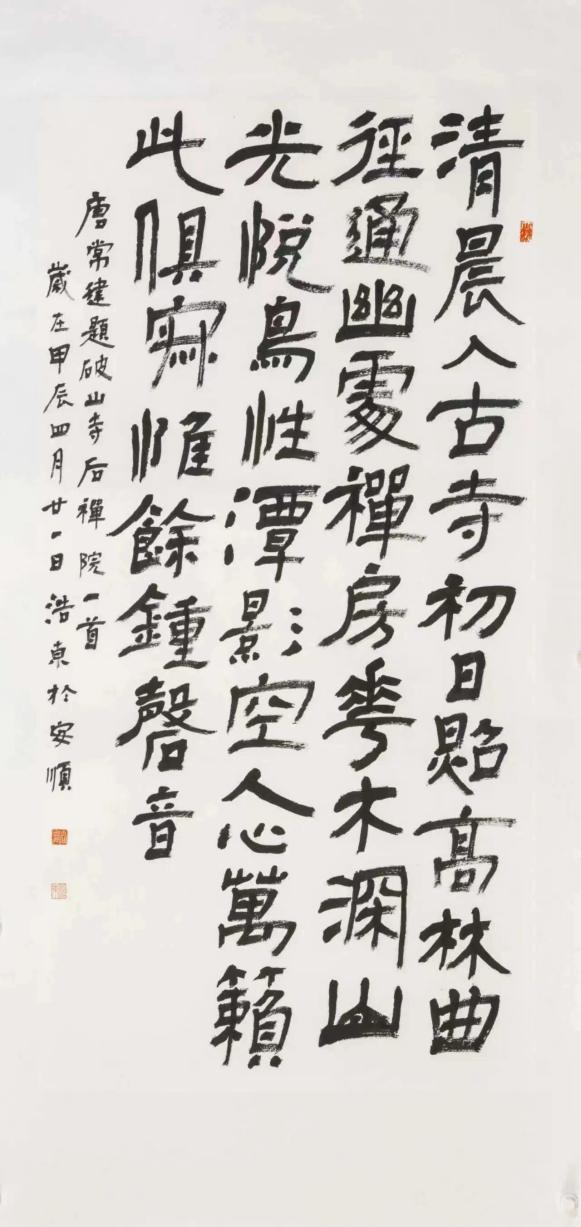 清晨入古寺初日照高林曲
徑通幽處禪房花木深山
光悅鳥性潭影空人心萬籟
此俱寂惟餘鍾磬音
唐常建題破山寺后禪院一首
歲在甲辰四月廿一日浩東於安順